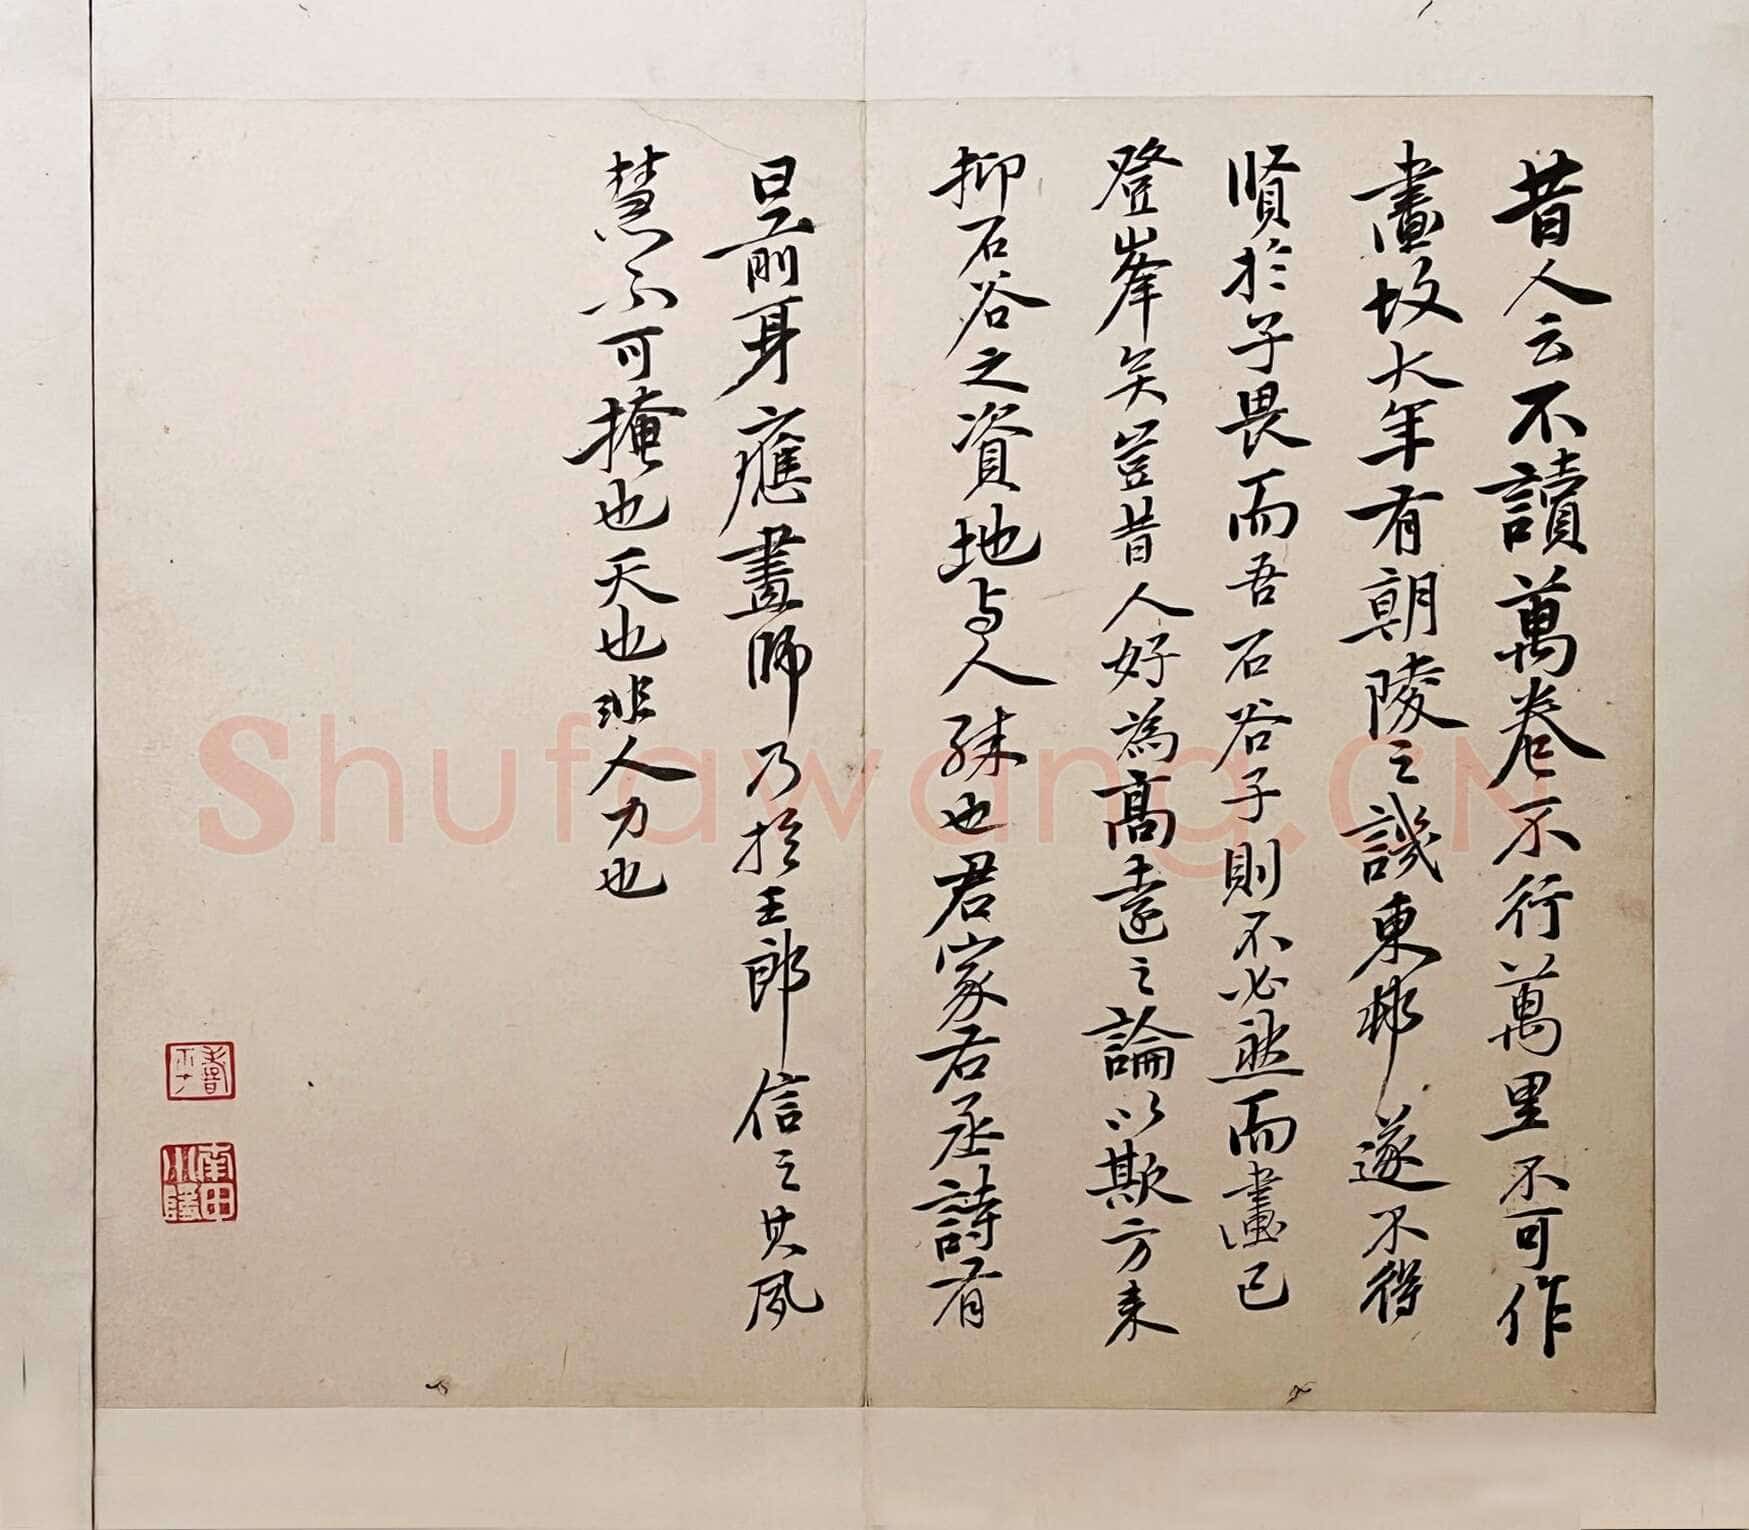 昔人云不讀萬卷不行萬里不可作
畫故大年有朝陵之譏東邨遂不得
賢於子畏而吾石谷子則不必然而畫已
登峯矣豈昔人好為高遠之論以欺方來
抑石谷之資地与人殊也君家右丞詩有
曰前身應畫師乃於王郎信之其夙
慧不可掩也天也非人力也
Shufawang.CN